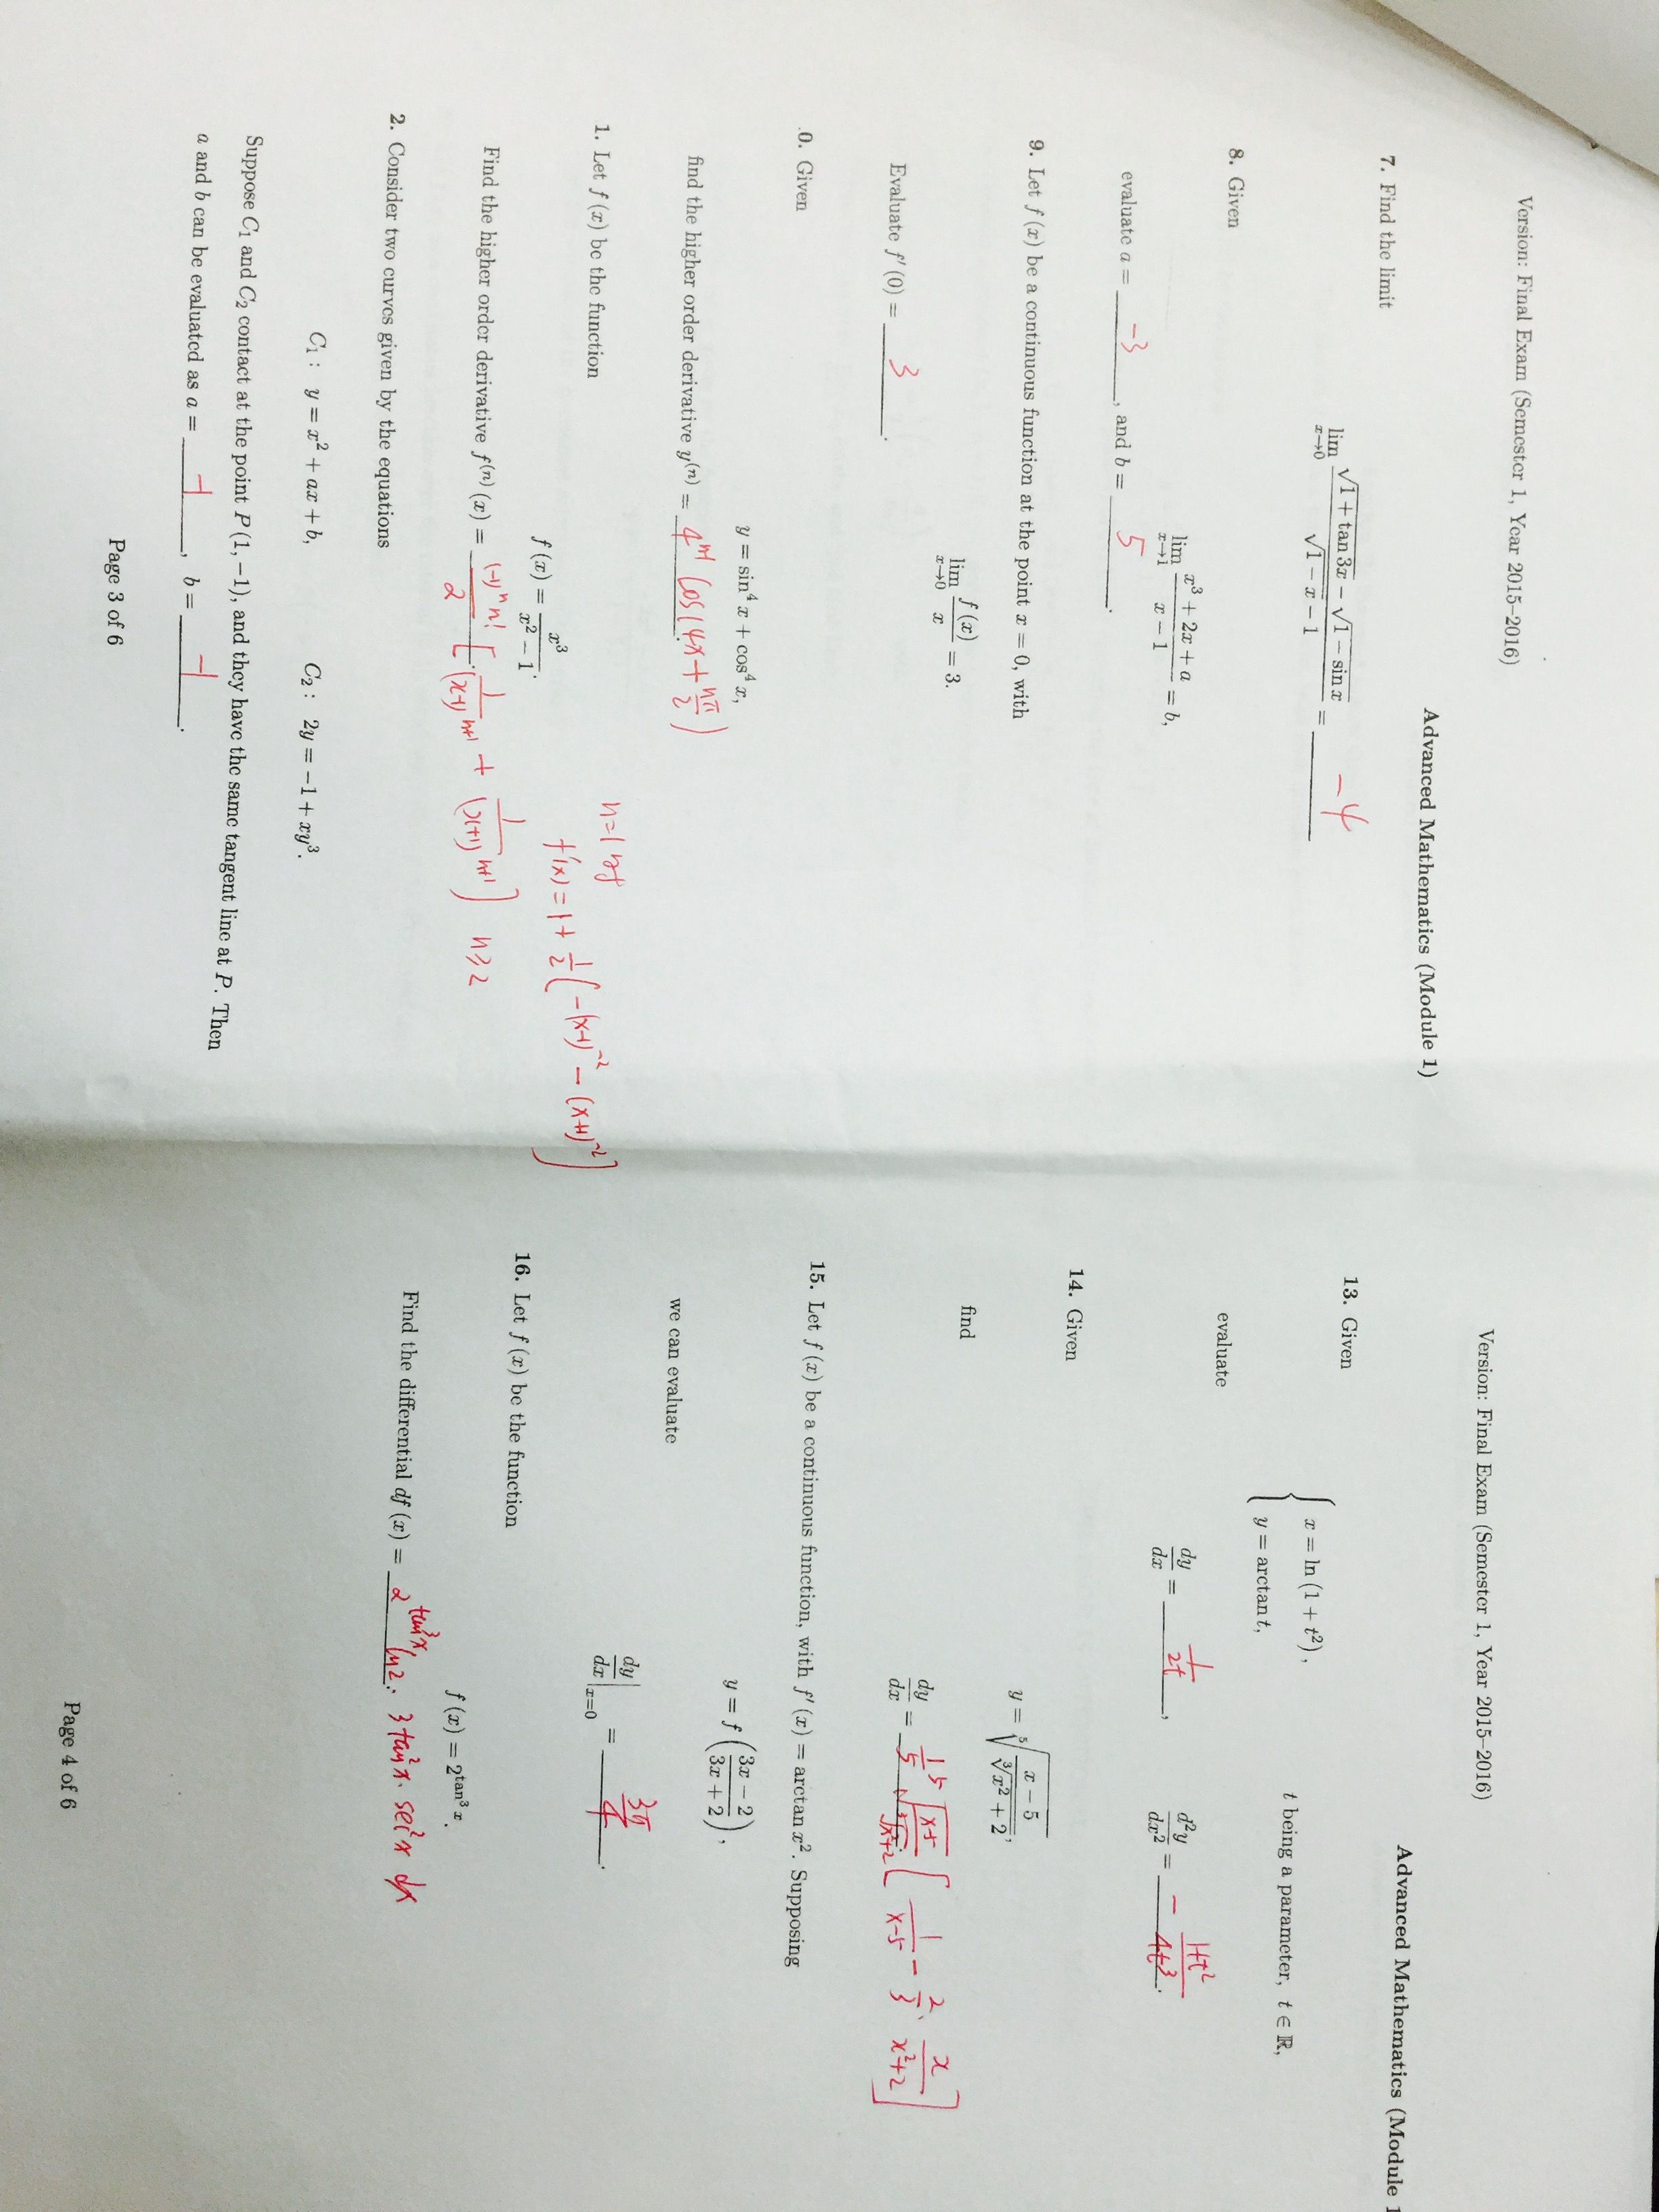 Version: Final Exam (Semester 1, Year 2015–2016)
Advanced Mathematics (Module 1)
7. Find the limit
lim x→0 (√(1 + tan 3x) − √(1 − sin x)) / (√(1 − x) − 1) = −4
8. Given
lim x→1 (x³ + 2x + a) / (x − 1) = b,
evaluate a = −3, and b = 5.
9. Let f (x) be a continuous function at the point x = 0, with
lim x→0 f (x) / x = 3.
Evaluate f′ (0) = 3.
.0. Given
y = sin⁴ x + cos⁴ x,
find the higher order derivative y⁽ⁿ⁾ = 4ⁿ⁻¹ cos(4x + nπ/2).
1. Let f (x) be the function
n=1时
f (x) = x³ / (x² − 1).
f′(x) = 1 + ½[−(x−1)⁻² − (x+1)⁻²]
Find the higher order derivative f⁽ⁿ⁾ (x) = (−1)ⁿ n! / 2 [1/(x−1)ⁿ⁺¹ + 1/(x+1)ⁿ⁺¹]. n⩾2
2. Consider two curves given by the equations
C₁ : y = x² + ax + b, C₂ : 2y = −1 + xy³.
Suppose C₁ and C₂ contact at the point P (1, −1), and they have the same tangent line at P. Then
a and b can be evaluated as a = −1, b = −1.
Page 3 of 6
Version: Final Exam (Semester 1, Year 2015–2016)
Advanced Mathematics (Module 1
13. Given
{ x = ln (1 + t²),
y = arctan t,
t being a parameter, t ∈ ℝ,
evaluate
dy/dx = 1/2t, d²y/dx² = − (1+t²)/4t³.
14. Given
y = ⁵√((x − 5) / ³√(x² + 2)),
find
dy/dx = 1/5 ⁵√((x−5) / ³√(x²+2)) [1/(x−5) − 2/3 · x/(x²+2)].
15. Let f (x) be a continuous function, with f′ (x) = arctan x². Supposing
y = f ((3x − 2) / (3x + 2)),
we can evaluate
dy/dx |x=0 = 3π/4.
16. Let f (x) be the function
f (x) = 2^(tan³ x).
Find the differential df (x) = 2^(tan³x) ln2 · 3tan²x · sec²x dx.
Page 4 of 6